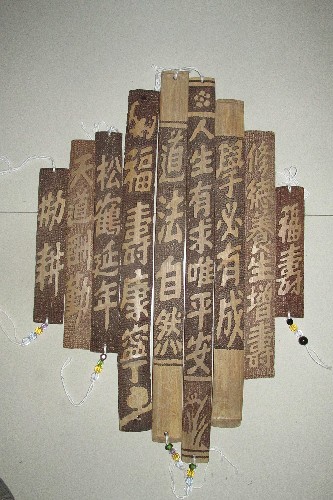 耕
天道酬勤
松鶴延年
福壽康寧
道法自然
人生有求唯平安
學必有成
修德养生增壽
福壽